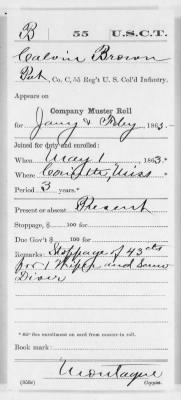 B 55 U.S.C.T.
Calvin Brown
Pvt, Co. C, 55 Reg't U. S. Col'd Infantry.
Appears on
Company Muster Roll
for Jany & Feby, 186
Joined for duty and enrolled:
When May 1, 1863.*
Where Corinth, Miss
Period 3 years.*
Present or absent Present
Stoppage, $ 100 for
Due Gov't $ 100 for
Remarks: Stoppage of 43 cts
for 1 and Screw
Driver
* See enrollment on card from muster-in roll.
Book mark:
Montague
(358c) Copyist.